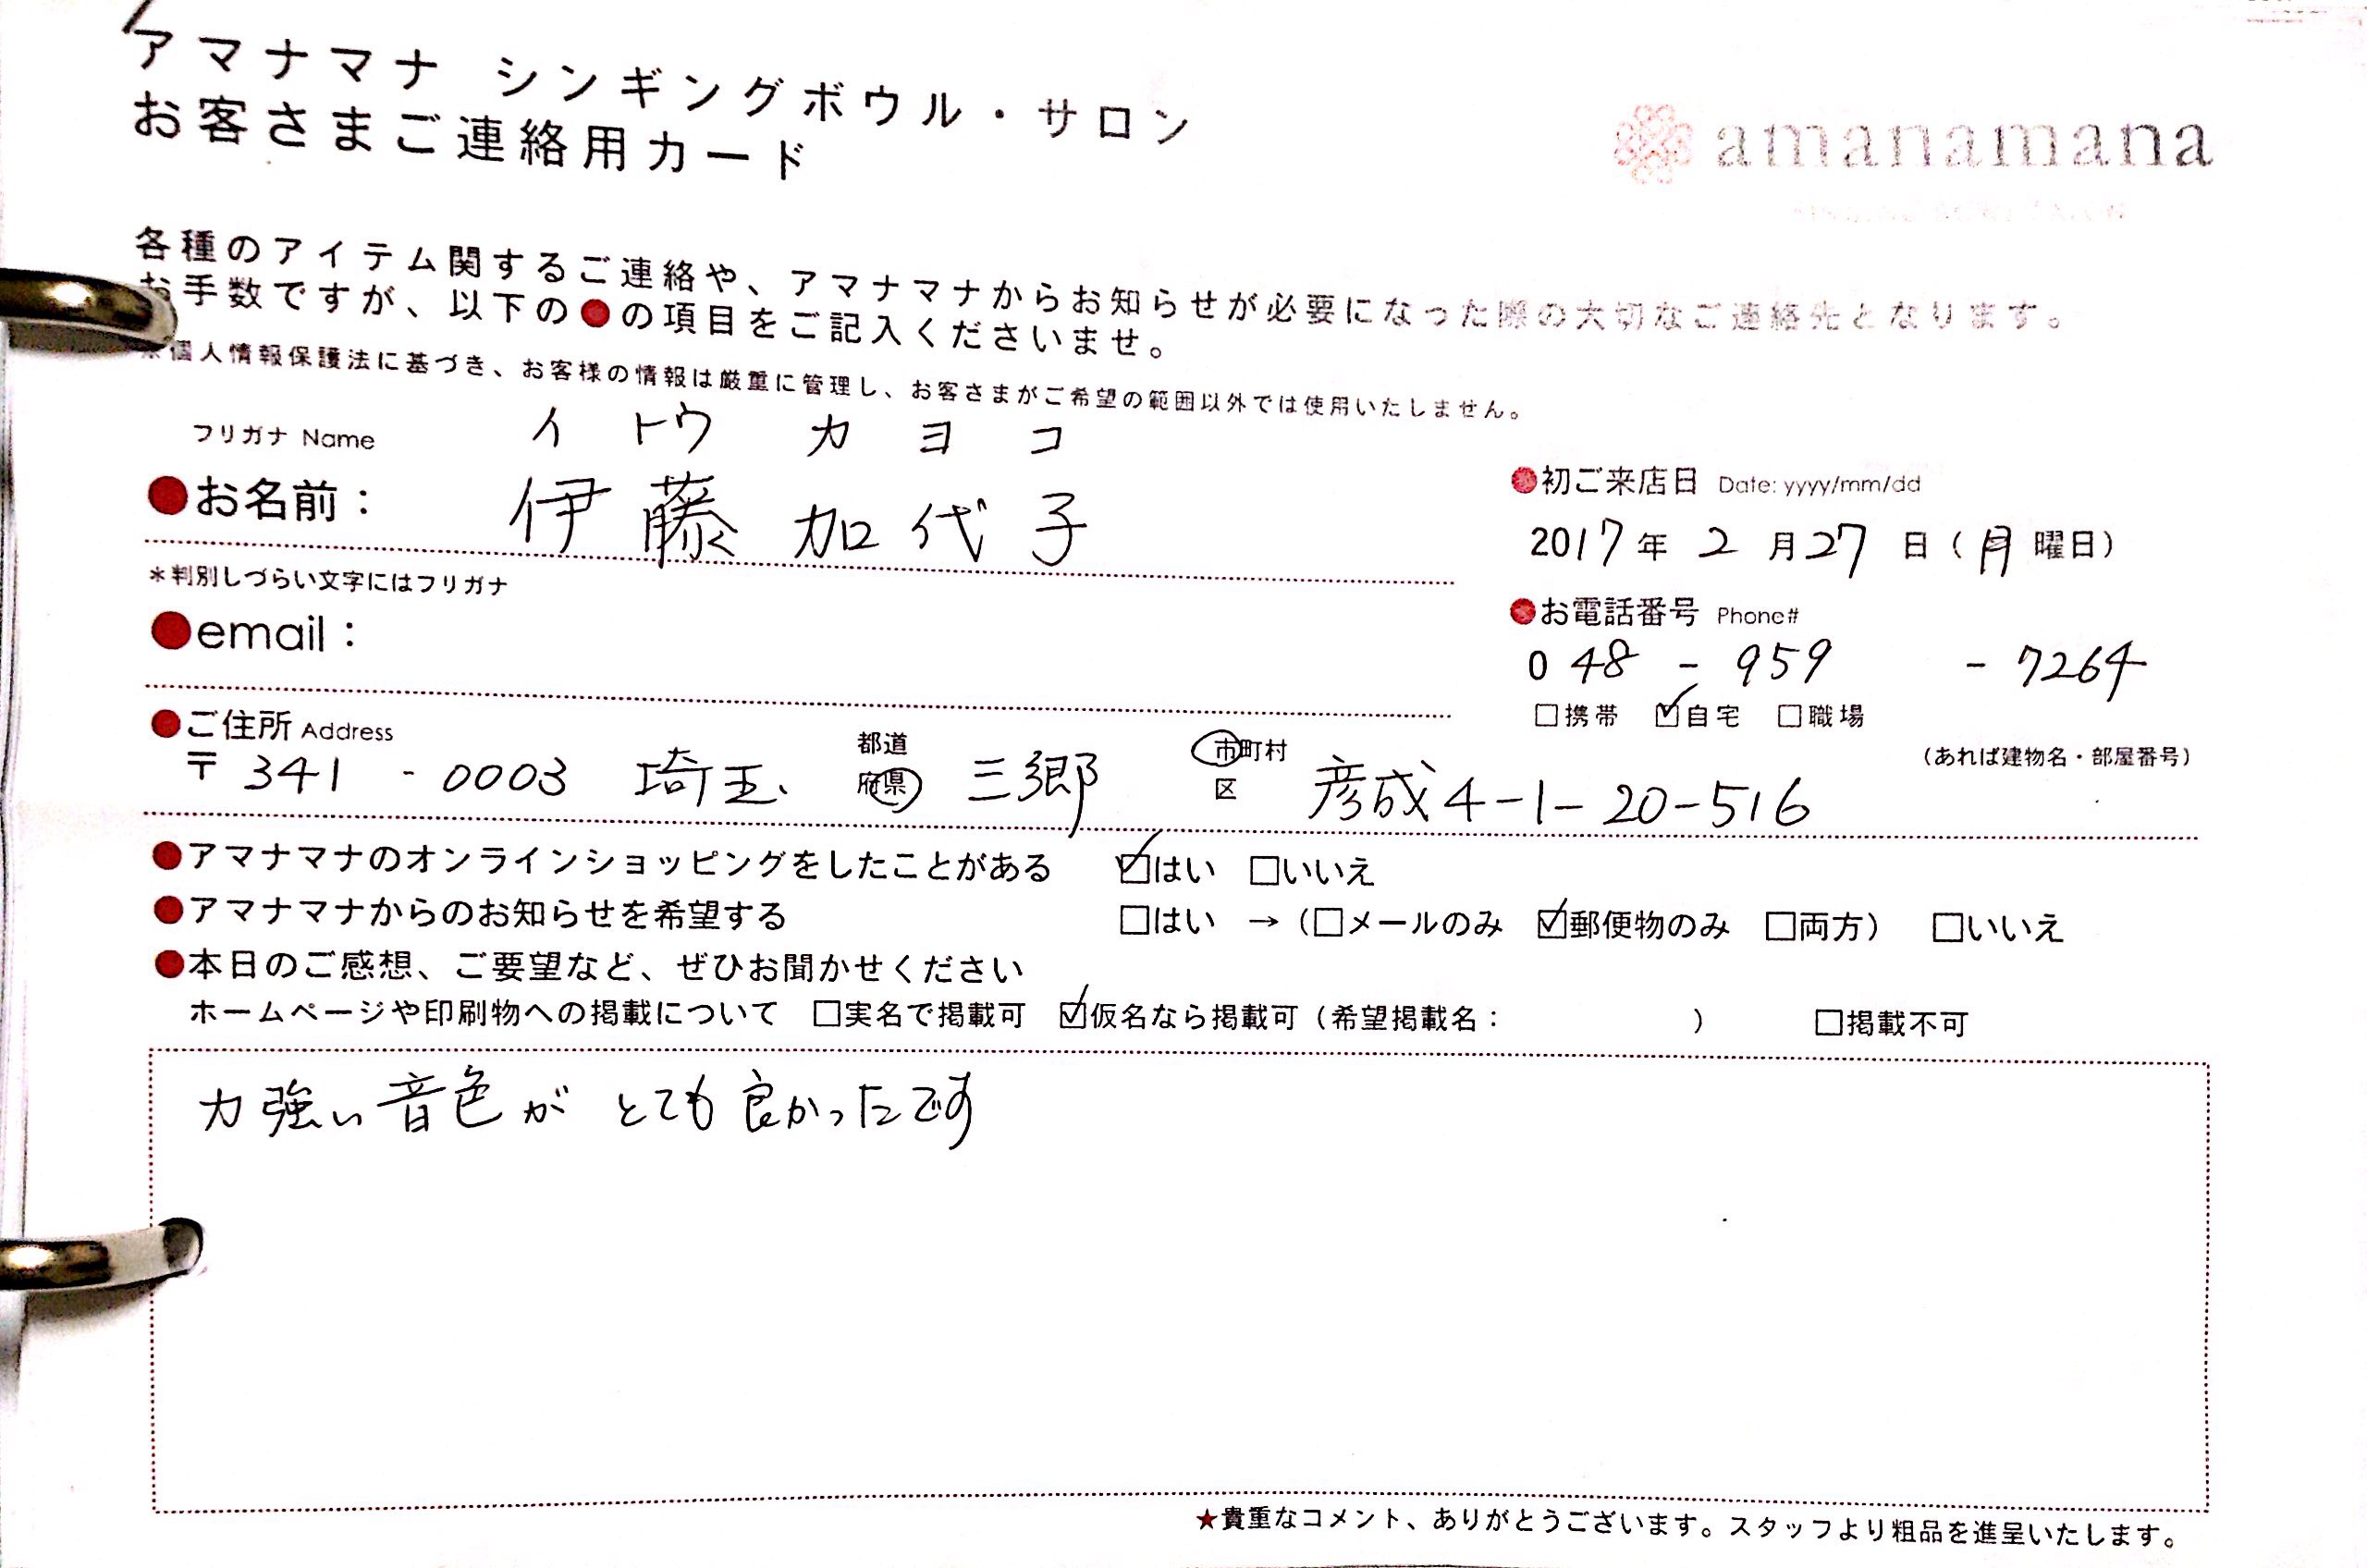 アマナマナ シンギングボウル・サロン
お客さまご連絡用カード
amanamana
各種のアイテム関するご連絡や、アマナマナからお知らせが必要になった際の大切なご連絡先となります。
お手数ですが、以下の●の項目をご記入くださいませ。
※個人情報保護法に基づき、お客様の情報は厳重に管理し、お客さまがご希望の範囲以外では使用いたしません。
フリガナ Name イトウ カヨコ
●お名前： 伊藤 加代子
＊判別しづらい文字にはフリガナ
●初ご来店日 Date: yyyy/mm/dd
2017年 2月27日（月曜日）
●email：
●お電話番号 Phone#
048 - 959 - 7264
□携帯 ☑自宅 □職場
●ご住所 Address
〒341 - 0003 埼玉 都道府県 三郷 市町村区 彦成4-1-20-516
（あれば建物名・部屋番号）
●アマナマナのオンラインショッピングをしたことがある ☑はい □いいえ
●アマナマナからのお知らせを希望する □はい →（□メールのみ ☑郵便物のみ □両方） □いいえ
●本日のご感想、ご要望など、ぜひお聞かせください
ホームページや印刷物への掲載について □実名で掲載可 ☑仮名なら掲載可（希望掲載名： ） □掲載不可
力強い音色が とても良かったです
★貴重なコメント、ありがとうございます。スタッフより粗品を進呈いたします。